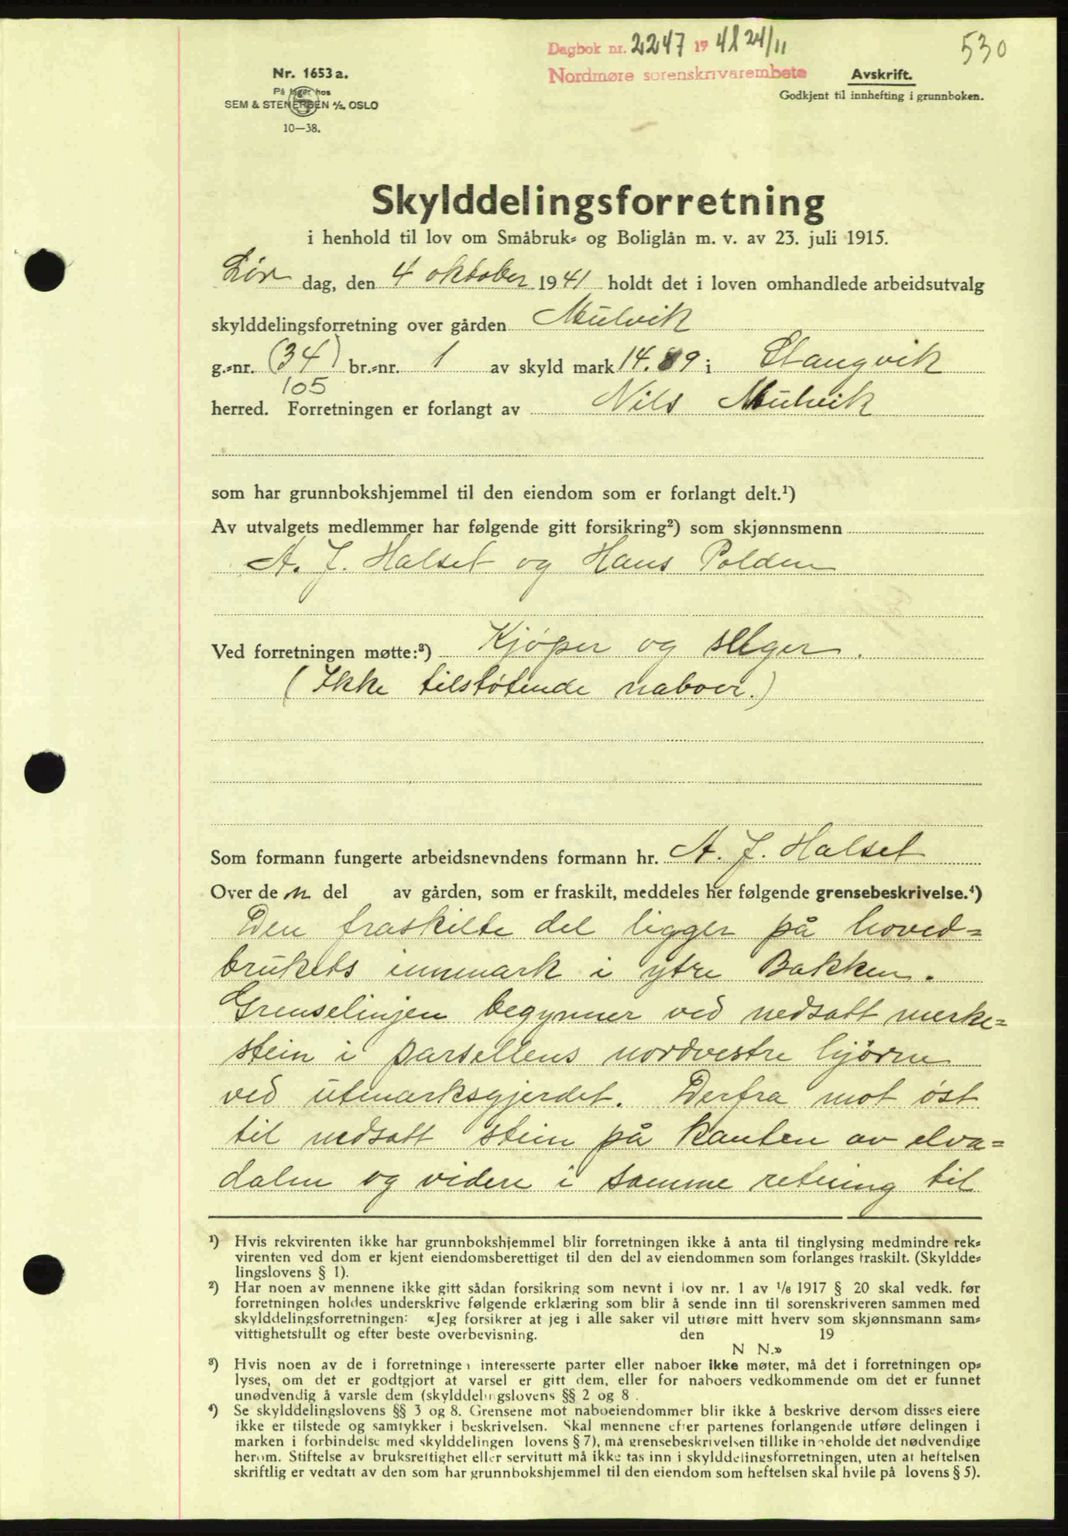 Dagbok nr. 2247 1941 24/11
530
Nordmøre sorenskriverembete
Nr. 1653 a.
På lager hos
SEM & STENERSEN A/S. OSLO
10—38.
Avskrift.
Godkjent til innhefting i grunnboken.
Skylddelingsforretning
i henhold til lov om Småbruk- og Boliglån m. v. av 23. juli 1915.
Lør dag, den 4 oktober 1941 holdt det i loven omhandlede arbeidsutvalg
skylddelingsforretning over gården Mulvik
g.-nr. (34) br.-nr. 1 av skyld mark 14.89 i Stangvik
105
herred. Forretningen er forlangt av Nils Mulvik
som har grunnbokshjemmel til den eiendom som er forlangt delt.¹)
Av utvalgets medlemmer har følgende gitt forsikring²) som skjønnsmenn
A. J. Halset og Hans Polden
Ved forretningen møtte:³) Kjøper og selger.
(Ikke tilstøtende naboer.)
Som formann fungerte arbeidsnevndens formann hr. A. J. Halset
Over de n del av gården, som er fraskilt, meddeles her følgende grensebeskrivelse.⁴)
Den fraskilte del ligger på hoved-
brukets innmark i ytre Bakken.
Grenselinjen begynner ved nedsatt merke-
stein i parsellens nordvestre hjørne
ved utmarksgjerdet. Derfra mot øst
til nedsatt stein på kanten av elva-
dalen og videre i samme retning til
¹) Hvis rekvirenten ikke har grunnbokshjemmel blir forretningen ikke å anta til tinglysing medmindre rek-
virenten ved dom er kjent eiendomsberettiget til den del av eiendommen som forlanges fraskilt. (Skyldde-
lingslovens § 1).
²) Har noen av mennene ikke gitt sådan forsikring som nevnt i lov nr. 1 av 1/6 1917 § 20 skal vedk. før
forretningen holdes underskrive følgende erklæring som blir å sende inn til sorenskriveren sammen med
skylddelingsforretningen: «Jeg forsikrer at jeg i alle saker vil utføre mitt hverv som skjønnsmann sam-
vittighetsfullt og efter beste overbevisning. den 19
N N.»
³) Hvis noen av de i forretningen interesserte parter eller naboer ikke møter, må det i forretningen op-
lyses, om det er godtgjort at varsel er gitt dem, eller for naboers vedkommende om det er funnet
unødvendig å varsle dem (skylddelingslovens §§ 2 og 8.
⁴) Se skylddelingslovens §§ 3 og 8. Grensene mot naboeiendommer blir ikke å beskrive dersom disses eiere
ikke er tilstede og samtykker i beskrivelsen. Skal mennene efter partenes forlangende utføre delingen i
marken i forbindelse med skylddelingen lovens § 7), må grensebeskrivelsen tillike inneholde det nødvendige
herom. Stiftelse av bruksrettighet eller servitutt må ikke tas inn i skylddelingsforretningen, uten at heftelsen
skriftlig er vedtatt av den som har grunnbokshjemmel til den eiendom som heftelsen skal hvile på lovens § 5).